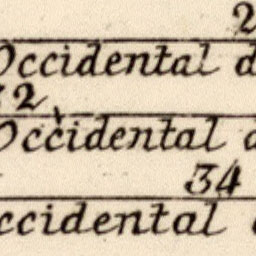 2
Occidental d
2
Occidental
34
ccidental